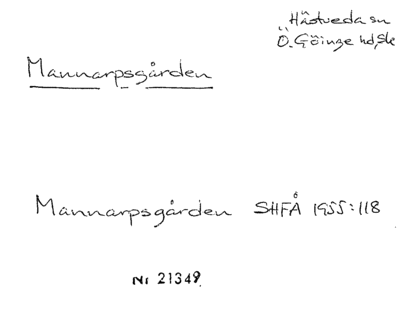 Hästveda sn
Ö. Göinge hd, Sk
Mannarpsgården
Mannarpsgården SHFÅ 1955:118
Nr 21349